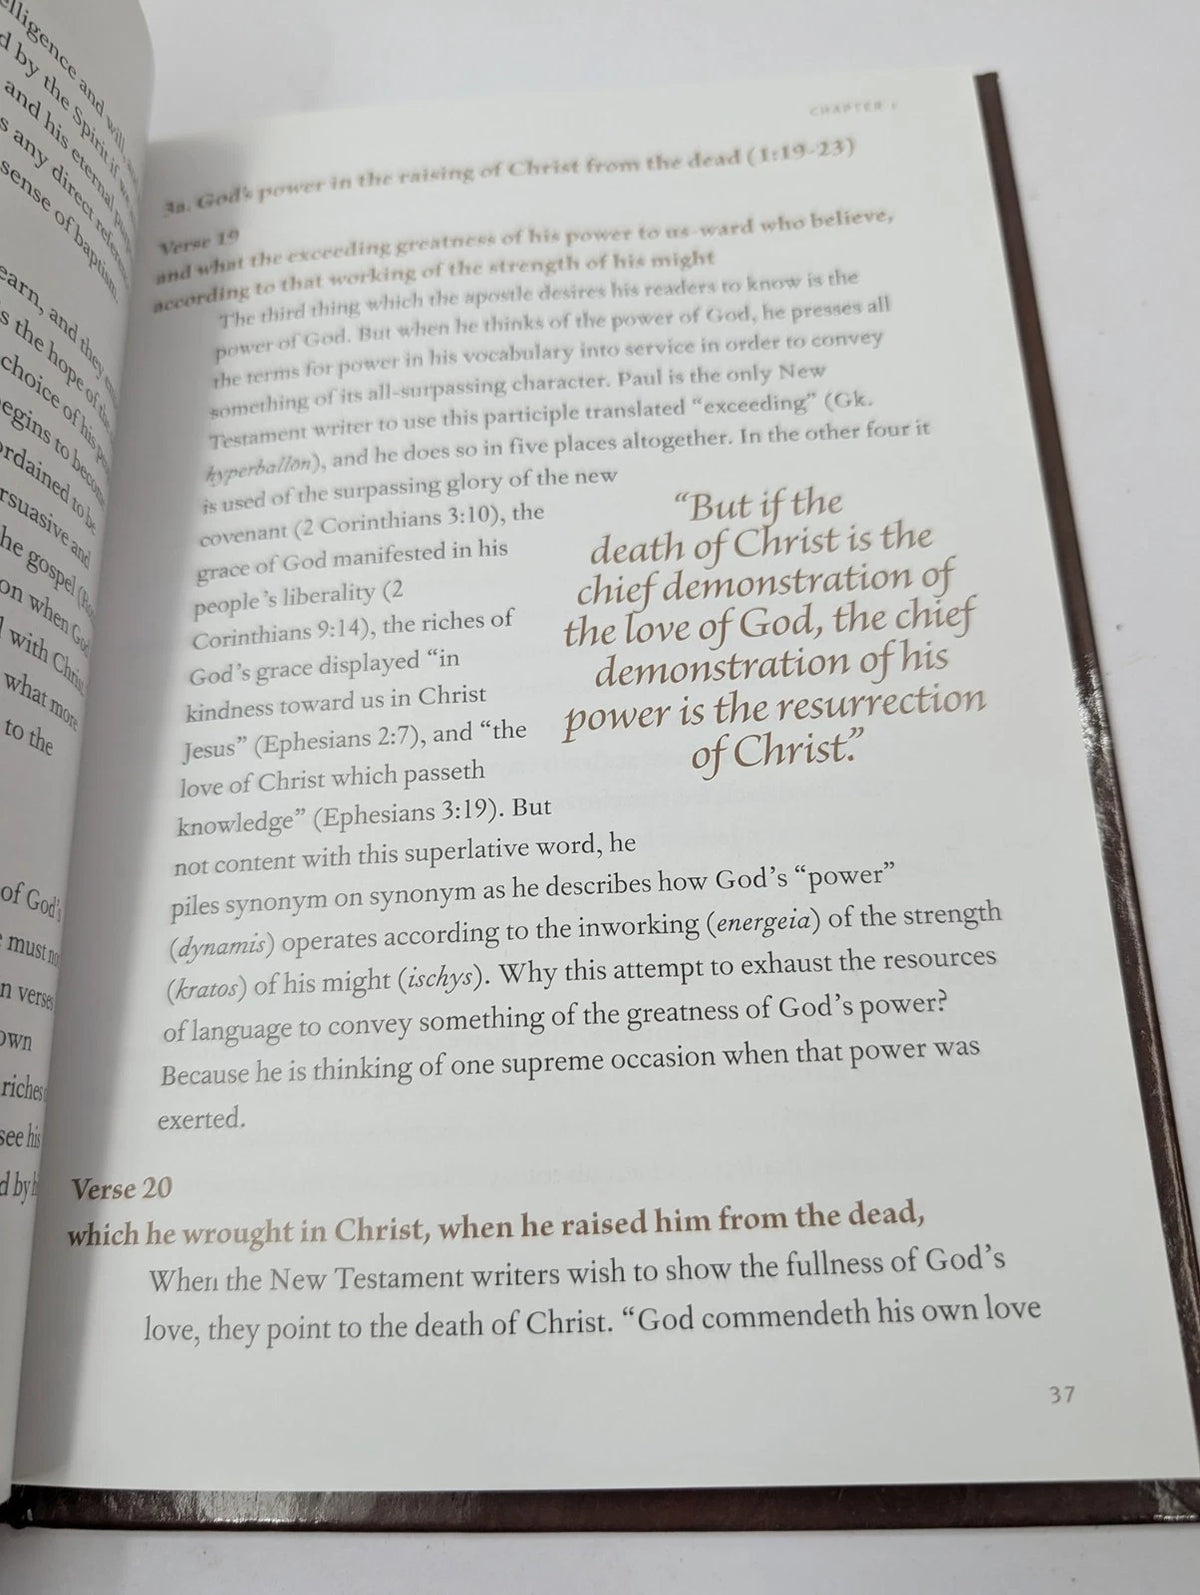 elligence and will,
d by the Spirit if we
and his eternal
s any direct
sense of baptism.
earn, and they
s the hope of
choice of his
egins to become
rdained to be
rsuasive and
he gospel
on when God
l with Christ
what more
to the
of God's
must
n verses
own
riches
see his
d by
CHAPTER
3a. God's power in the raising of Christ from the dead (1:19-23)
Verse 19
and what the exceeding greatness of his power to us-ward who believe,
according to that working of the strength of his might
The third thing which the apostle desires his readers to know is the
power of God. But when he thinks of the power of God, he presses all
the terms for power in his vocabulary into service in order to convey
something of its all-surpassing character. Paul is the only New
Testament writer to use this participle translated “exceeding” (Gk.
hyperballōn), and he does so in five places altogether. In the other four it
is used of the surpassing glory of the new
covenant (2 Corinthians 3:10), the
grace of God manifested in his
people’s liberality (2
Corinthians 9:14), the riches of
God’s grace displayed “in
kindness toward us in Christ
Jesus” (Ephesians 2:7), and “the
love of Christ which passeth
knowledge” (Ephesians 3:19). But
not content with this superlative word, he
“But if the
death of Christ is the
chief demonstration of
the love of God, the chief
demonstration of his
power is the resurrection
of Christ.”
piles synonym on synonym as he describes how God’s “power”
(dynamis) operates according to the inworking (energeia) of the strength
(kratos) of his might (ischys). Why this attempt to exhaust the resources
of language to convey something of the greatness of God’s power?
Because he is thinking of one supreme occasion when that power was
exerted.
Verse 20
which he wrought in Christ, when he raised him from the dead,
When the New Testament writers wish to show the fullness of God’s
love, they point to the death of Christ. “God commendeth his own love
37